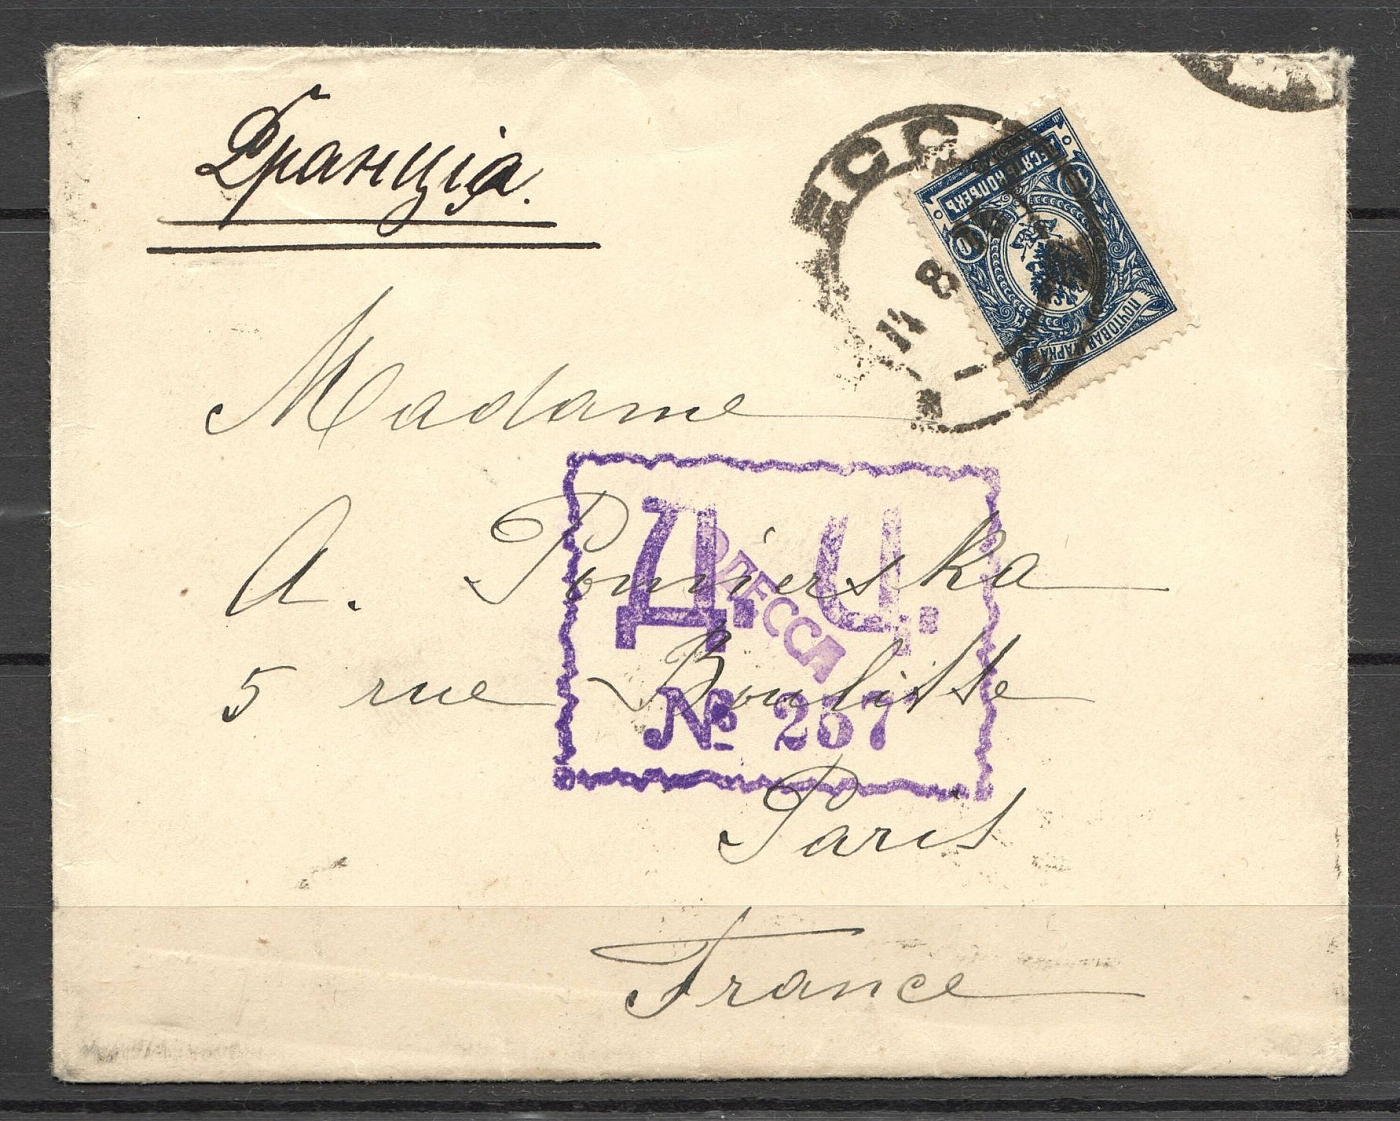 Франція.
ОДЕССА
14 8
ДЕСЯТЬ КОПѢЕКЪ
10 10
ПОЧТОВАЯ МАРКА
Madame
A. Pomierska
5 rue Boulitte
Paris
France
Д. Ц.
ОДЕССА
№ 257